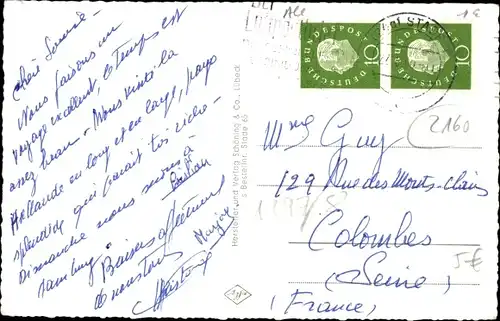 Chère Janine
Nous faisons un
voyage excellent, le temps est
assez beau. Nous visitons la
Hollande en long et en large, pays
splendide qui paraît très riche.
Dimanche nous serons à
Hambourg. Baisers affectueux
de nous tous
Hersteller und Verlag Schöning & Co., Lübeck
Bestellnr. Stade 65
DEUTSCHE BUNDESPOST
10
DEUTSCHE BUNDESPOST
10
STADE
All
1€
2160
Mme Guy
129 Rue des Monts-Clairs
Colombes
(Seine)
(France)
5€